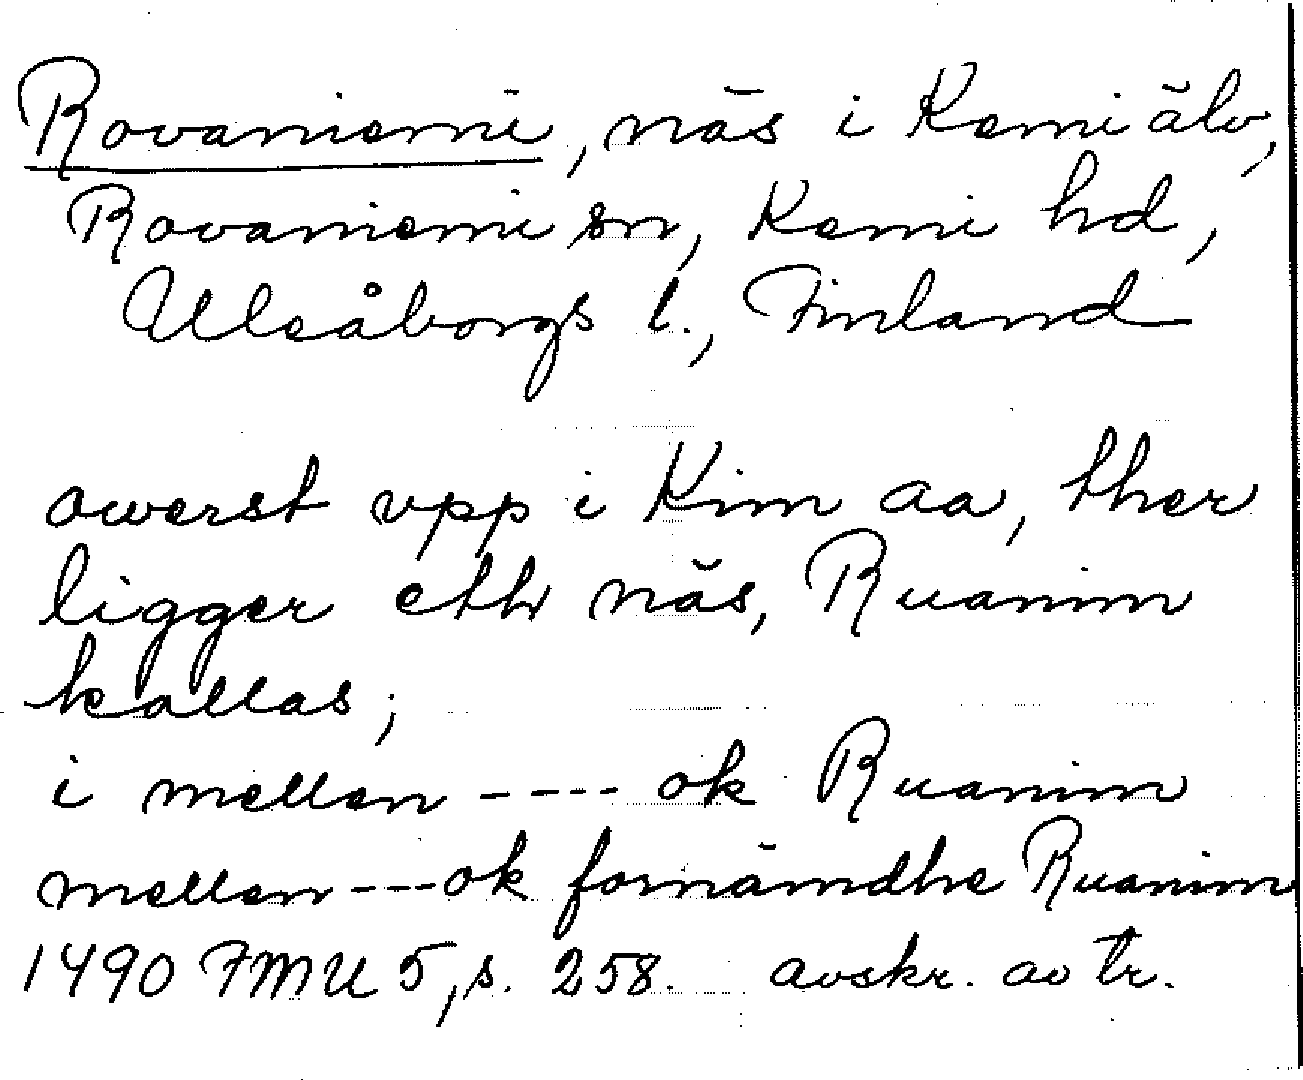 Rovaniemi, näs i Kemi älv,
Rovaniemi sn, Kemi hd,
Uleåborgs l., Finland
owerst vpp i Kim aa, ther
ligger eth näs, Ruanim
kallas;
i mellen ---- ok Ruanim
mellen --- ok fornämdhe Ruanim
1490 FMU 5, s. 258. avskr. av tr.